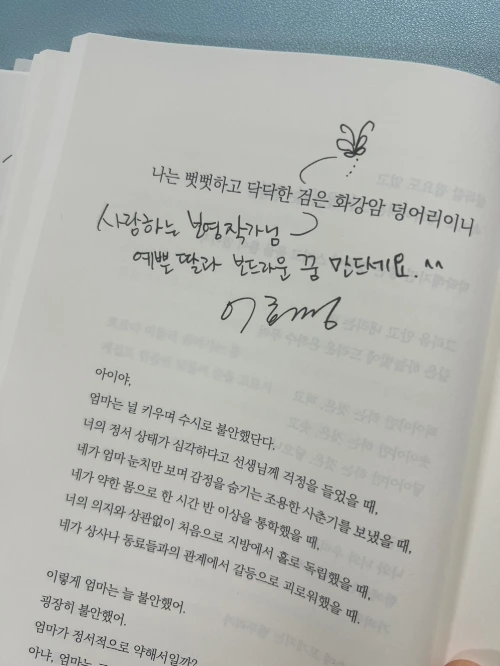 나는 뻣뻣하고 닥닥한 검은 화강암 덩어리이니
사랑하는 보영작가님
예쁜 딸과 보드라운 꿈 만드세요.^^
아이야,
엄마는 널 키우며 수시로 불안했단다.
너의 정서 상태가 심각하다고 선생님께 걱정을 들었을 때,
네가 엄마 눈치만 보며 감정을 숨기는 조용한 사춘기를 보냈을 때,
네가 약한 몸으로 한 시간 반 이상을 통학했을 때,
너의 의지와 상관없이 처음으로 지방에서 홀로 독립했을 때,
네가 상사나 동료들과의 관계에서 갈등으로 괴로워했을 때.
이렇게 엄마는 늘 불안했어.
굉장히 불안했어.
엄마가 정서적으로 약해서일까?
아냐, 엄마는